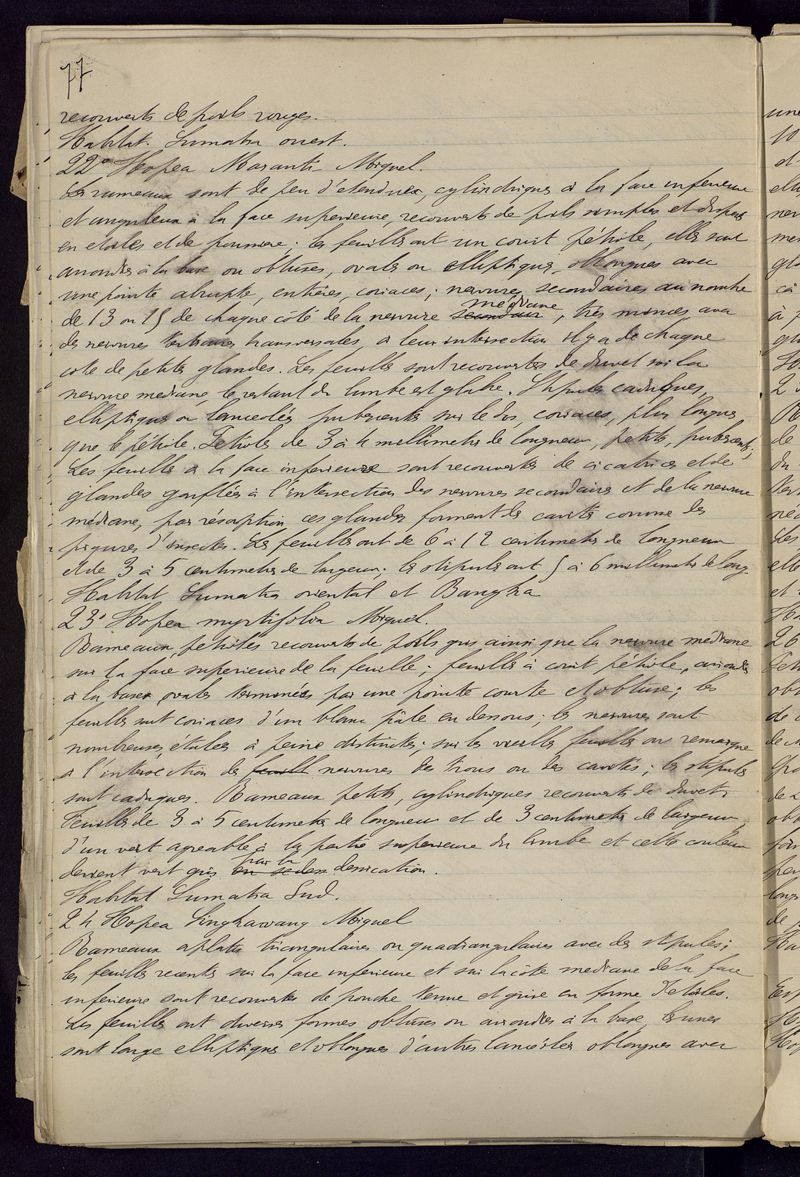 77
recouverts de poils rouges.
Habitat. Sumatra ouest.
22° Hopea Maranti Miquel.
Les rameaux sont de peu d'etendues, cylindriques à la face inferieure
et anguleux à la face superieure, recouverts de poils simples et disposés
en etoiles et de poussiere; les feuilles ont un court pétiole, elles sont
arrondies à la base ou obtuses, ovales ou elliptiques, oblongues avec
une pointe abrupte, entières, coriaces; nervures secondaires au nombre
de 13 ou 15 de chaque côté de la nervure médiane, très minces avec
des nervures tertiaires transversales, à leur intersection il y a de chaque
cote de petites glandes. Les feuilles sont recouvertes de duvet sur la
nervure mediane le restant du limbe est glabre. Stipules caduques,
elliptiques ou lanceolées pubescentes sur le dos, coriaces, plus longues
que le pétiole. Petioles de 3 à 4 millimetres de longueur, petits, pubescents;
Les feuilles à la face inferieure sont recouvertes de cicatrices et de
glandes gonflées à l'intersection des nervures secondaires et de la nervure
médiane, par résorption ces glandes forment des cavités comme des
piqures d'insectes. Les feuilles ont de 6 à 12 centimetres de longueur
et de 3 à 5 centimetres de largeur; les stipules ont 5 à 6 millimetres de long.
Habitat Sumatra oriental et Bangka
23° Hopea myrtifolia Miquel.
Rameaux, petioles recouverts de poils gris ainsi que la nervure médiane
sur la face superieure de la feuille; feuilles à court pétiole, arrondies
à la base, ovales terminées par une pointe courte et obtuse; les
feuilles sont coriaces d'un blanc pâle en dessous; les nervures sont
nombreuses, étalées à peine distinctes; sur les vieilles feuilles on remarque
à l'intersection des feuill nervures des trous ou des cavités; les stipules
sont caduques. Rameaux petits, cylindriques recouverts de duvet.
Feuilles de 3 à 5 centimetres de longueur et de 3 centimetres de largeur,
d'un vert agreable à la partie superieure du limbe et cette couleur
devient vert gris par la dessication.
Habitat Sumatra Sud.
24 Hopea Singkawang Miquel
Rameaux aplatis triangulaires ou quadrangulaires avec des stipules;
les feuilles recentes sur la face inferieure et sur la côte mediane de la face
inferieure sont recouvertes de poudre tenue et grise en forme d'etoiles.
Les feuilles ont diverses formes obtuses ou arrondies à la base, les unes
sont large elliptiques et oblongues d'autres lancéolées oblongues avec